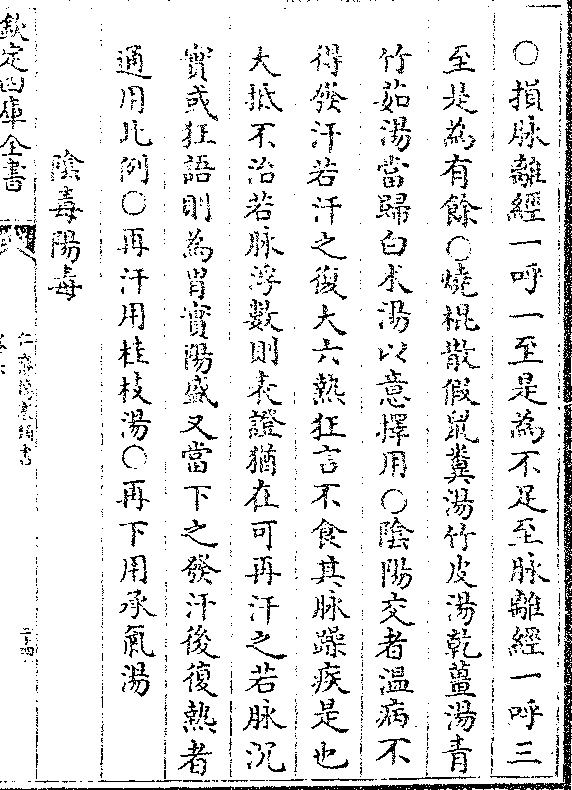 ○損脉離經一呼一至是為不足至脉離經一呼三
至是為有餘○燒裩散假鼠糞湯竹皮湯乾薑湯青
竹茹湯當歸白朮湯以意擇用○陰陽交者温病不
得發汗若汗之復大六熱狂言不食其脉躁疾是也
大抵不治若脉浮數則表證猶在可再汗之若脉沉
實或狂語則為胃實陽盛又當下之發汗後復熱者
通用此例○再汗用桂枝湯○再下用承氣湯
陰毒陽毒
欽定四庫全書